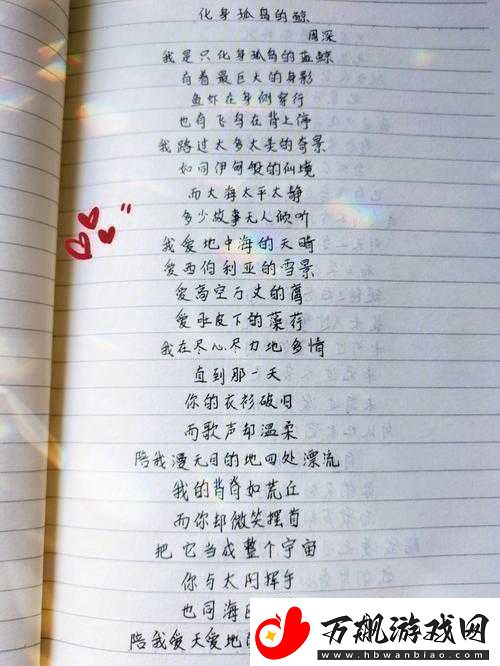 化身孤岛的鲸
周深
我是只化身孤岛的蓝鲸
有着最巨大的身影
鱼虾在身侧穿行
也有飞鸟在背上停
我路过太多太美的奇景
如同伊甸般的仙境
而大海太平太静
多少故事无人倾听
我爱地中海的天晴
爱西伯利亚的雪景
爱高空万丈的鹰
爱水皮下的藻荇
我在尽心尽力地多情
直到那一天
你的衣衫破旧
而歌声却温柔
陪我漫无目的地四处漂流
我的背脊如荒丘
而你却微笑摆首
把它当成整个宇宙
你与太阳挥手
也同海
陪我爱天爱地
万飙游戏网
www.hbwanbiao.com